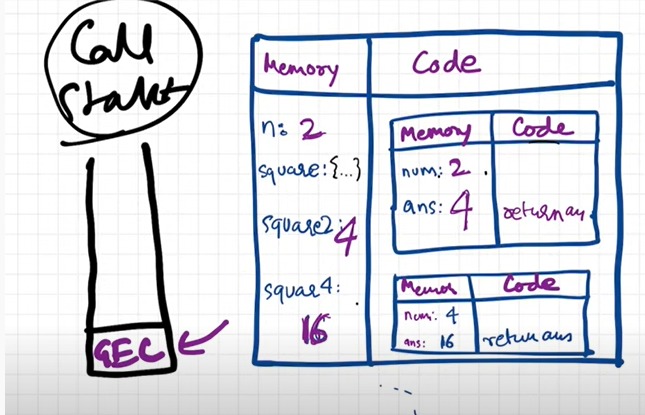 Call
Stakt
GEC
Memory
Code
n: 2
square:{...}
square2: 4
squar4:
16
Memory
Code
num: 2
ans: 4
return an
Code
num: 4
ans: 16
return ans